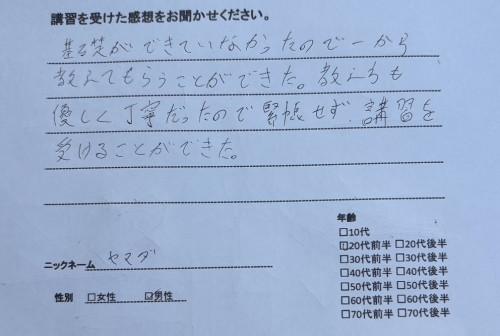 講習を受けた感想をお聞かせください。
基礎ができていなかったので一から
教えてもらうことができた。教え方も
優しく丁寧だったので緊張せず講習を
受けることができた。
年齢
□10代
☑20代前半 □20代後半
□30代前半 □30代後半
□40代前半 □40代後半
□50代前半 □50代後半
□60代前半 □60代後半
□70代前半 □70代後半
ニックネーム ヤマダ
性別 □女性 ☑男性